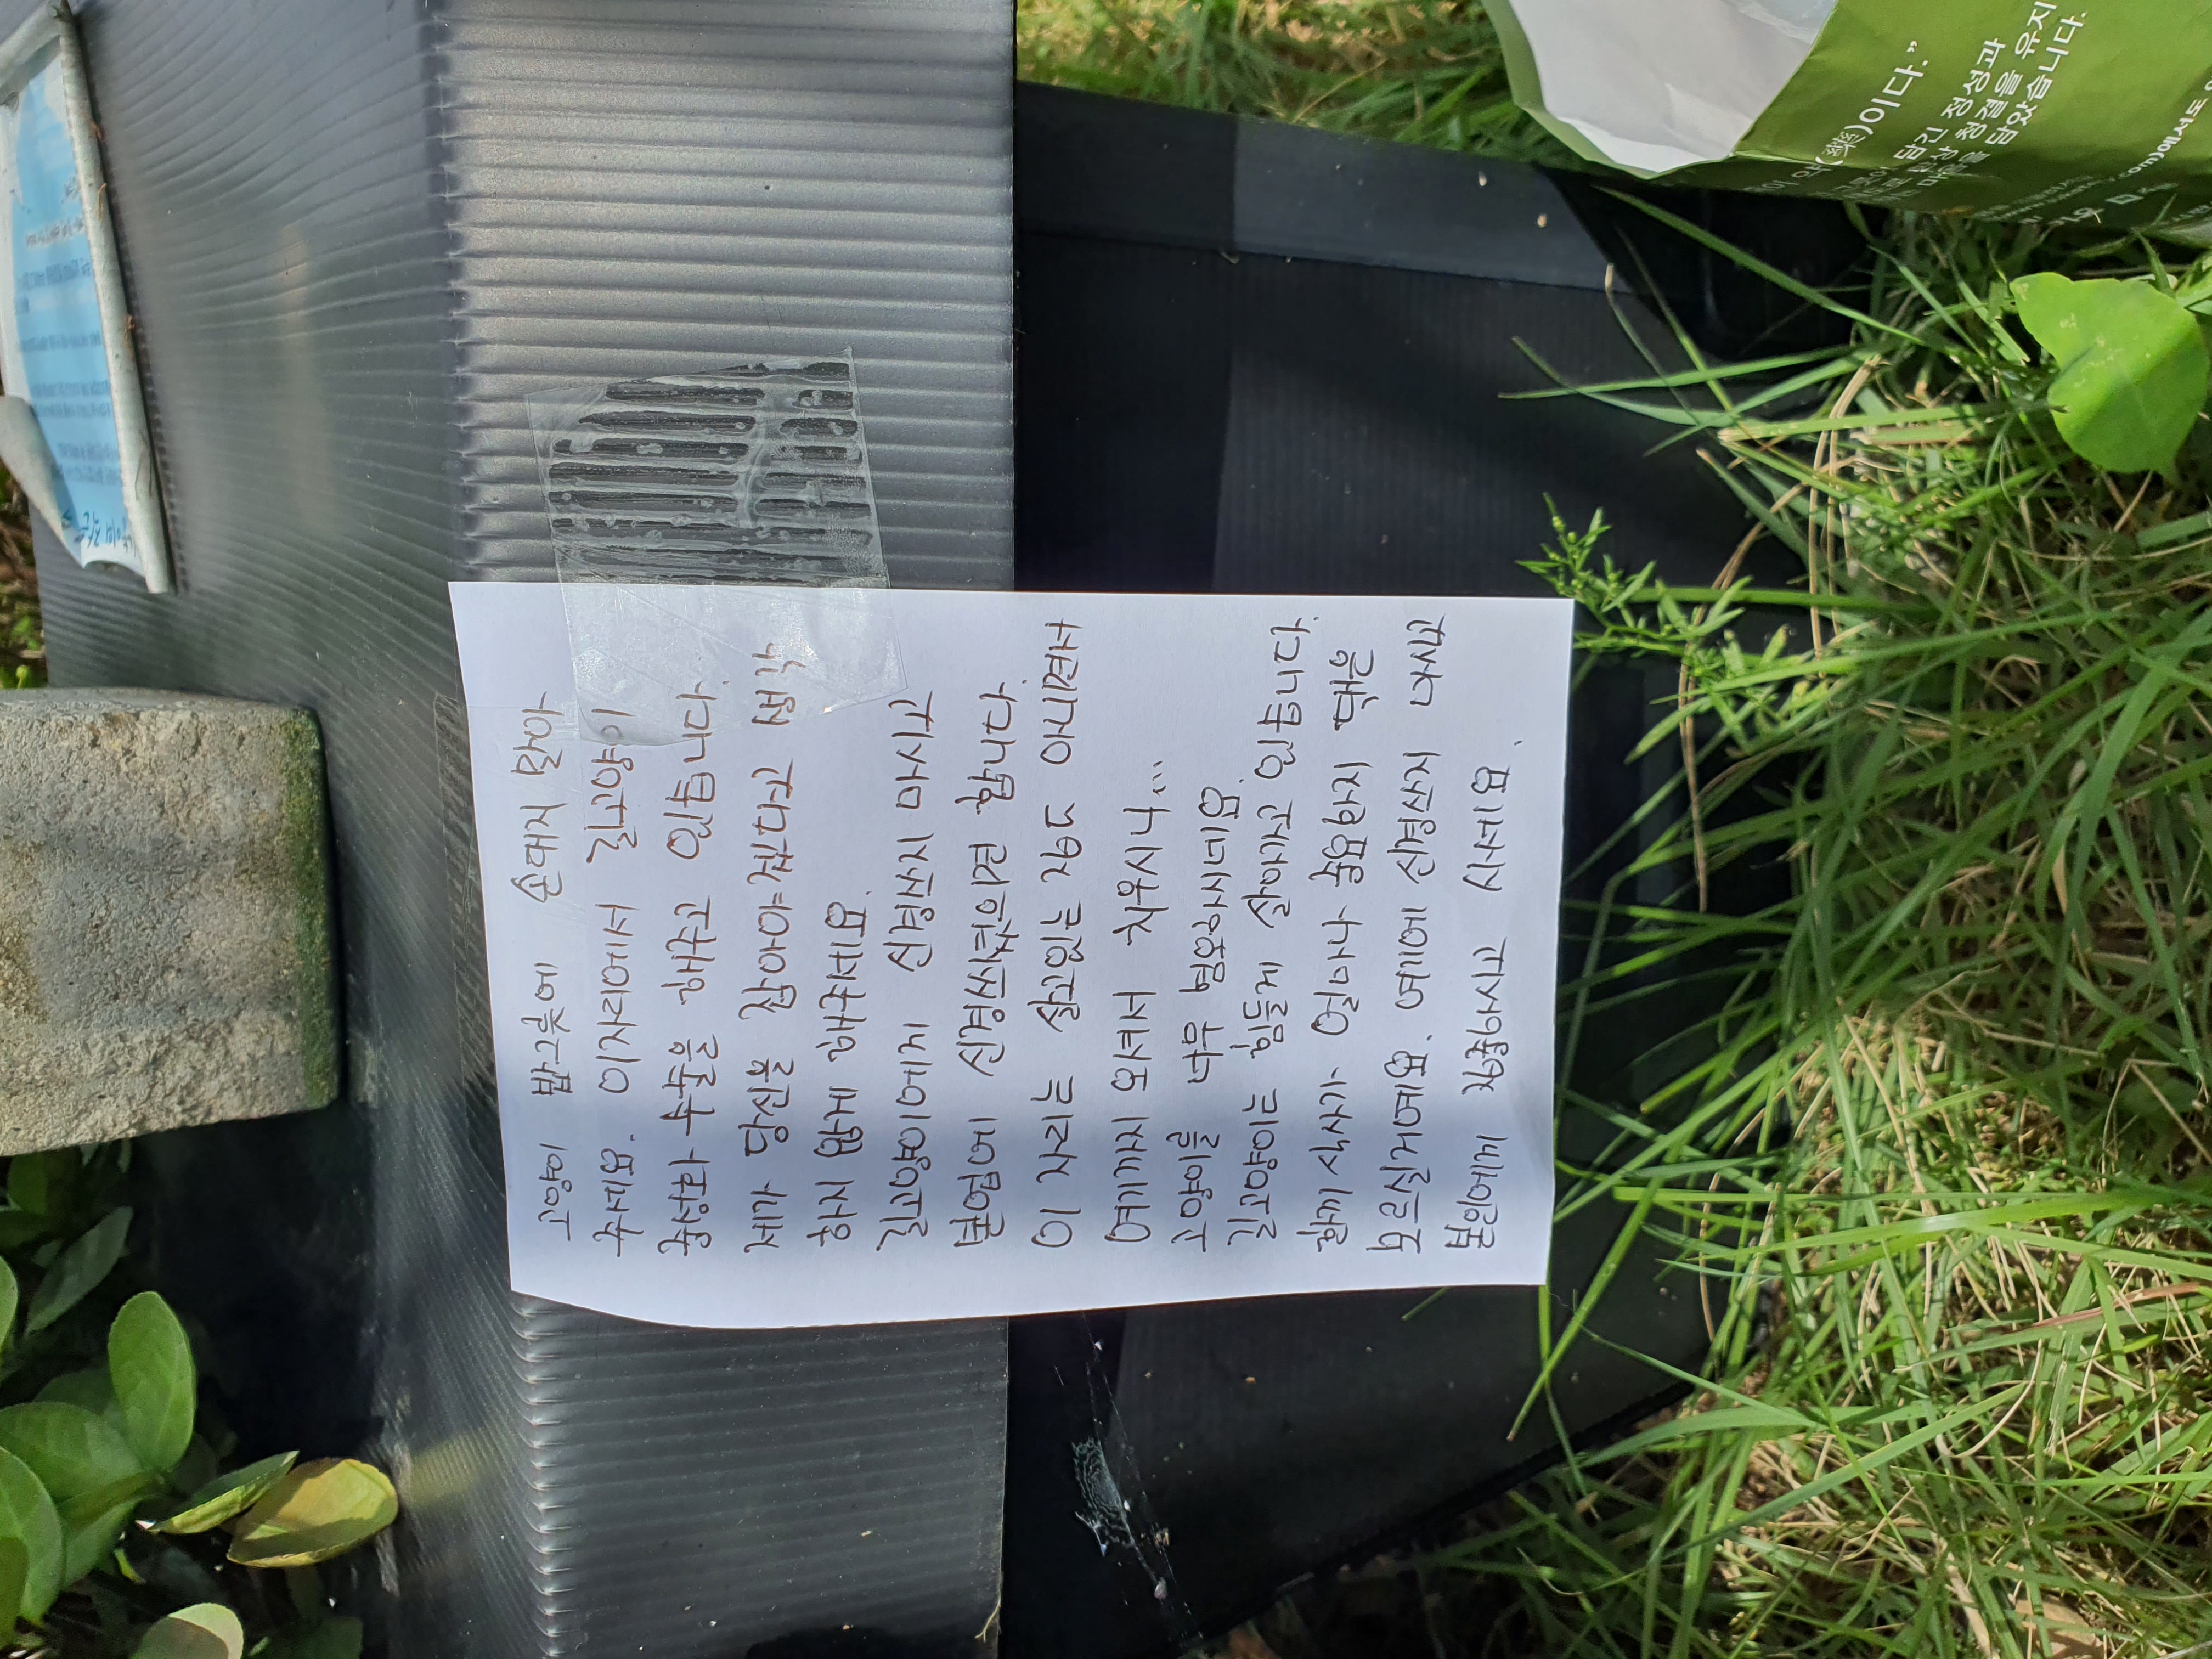 고양이 밥그릇에 손대지 말아
주세요. 이자리에서 길고양이
중성화 수술을 해주고 있습니다
제가 당신을 잡아야겠다고 생각
하지 않게 해주세요.
길고양이에게 신경쓰지 마시고
본업에 신경쓰셨으면 합니다
이 자리는 살고있는 지역도 아니면서
여기까지 오셔서 치우시나...
고양이를 너무 혐오하시네요.
길고양이는 힘들게 살아가고 있습니다.
한끼 식사가 얼마나 중요한지 댁은
모르실거예요. 여기에 신경쓰지 마시고
본인에게 집중하시고 사세요.
이다."
담긴 정성과
항상 청결을 유지
마음을 담았습니다.